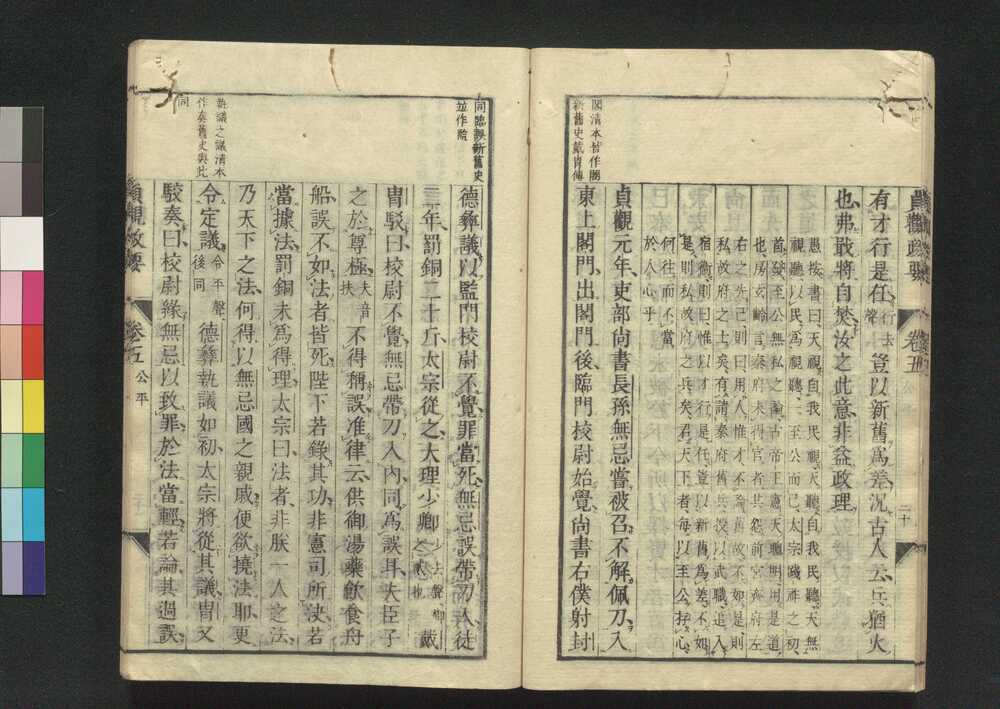 貞觀政要 卷五 二十
閣清本皆作閤
新舊史戴胄傳
有才行是任行去聲豈以新舊爲差況古人云兵猶火
也弗戢將自焚汝之此意非益政理
愚按書曰天視自我民視天聽自我民聽天無
視聽以民爲視聽一至公而已太宗踐祚之初
首發至公無私之論古帝王憲天聰明用是道
也房玄齡言秦府未得官者共怨前宮齊府左
右之先己則曰用人惟才不論舊故不如是則
私故府之士矣有請秦府舊兵授以武職追入
宿衞則曰惟以才行是任豈以新舊爲差不如
是則私故府之兵矣君天下者每以至公存心
何往而不當
於人心乎
貞觀元年吏部尚書長孫無忌嘗被召不解佩刀入
東上閣門出閣門後臨門校尉始覺尚書右僕射封
同臨誤新舊史
並作監
德彝議以監門校尉不覺罪當死無忌誤帶刀入徒
二年罰銅二十斤太宗從之大理少卿少去聲卿戴
胄駁曰校尉不覺無忌帶刀入內同爲誤耳夫臣子
之於尊極夫音扶不得稱誤准律云供御湯藥飮食舟
船誤不如法者皆死陛下若錄其功非憲司所決若
當據法罰銅未爲得理太宗曰法者非朕一人之法
乃天下之法何得以無忌國之親戚便欲撓法耶更
執議之議清本
作奏舊史與此
同
令定議令平聲後同德彝執議如初太宗將從其議胄又
駁奏曰校尉緣無忌以致罪於法當輕若論其過誤
貞觀政要 卷五 公平